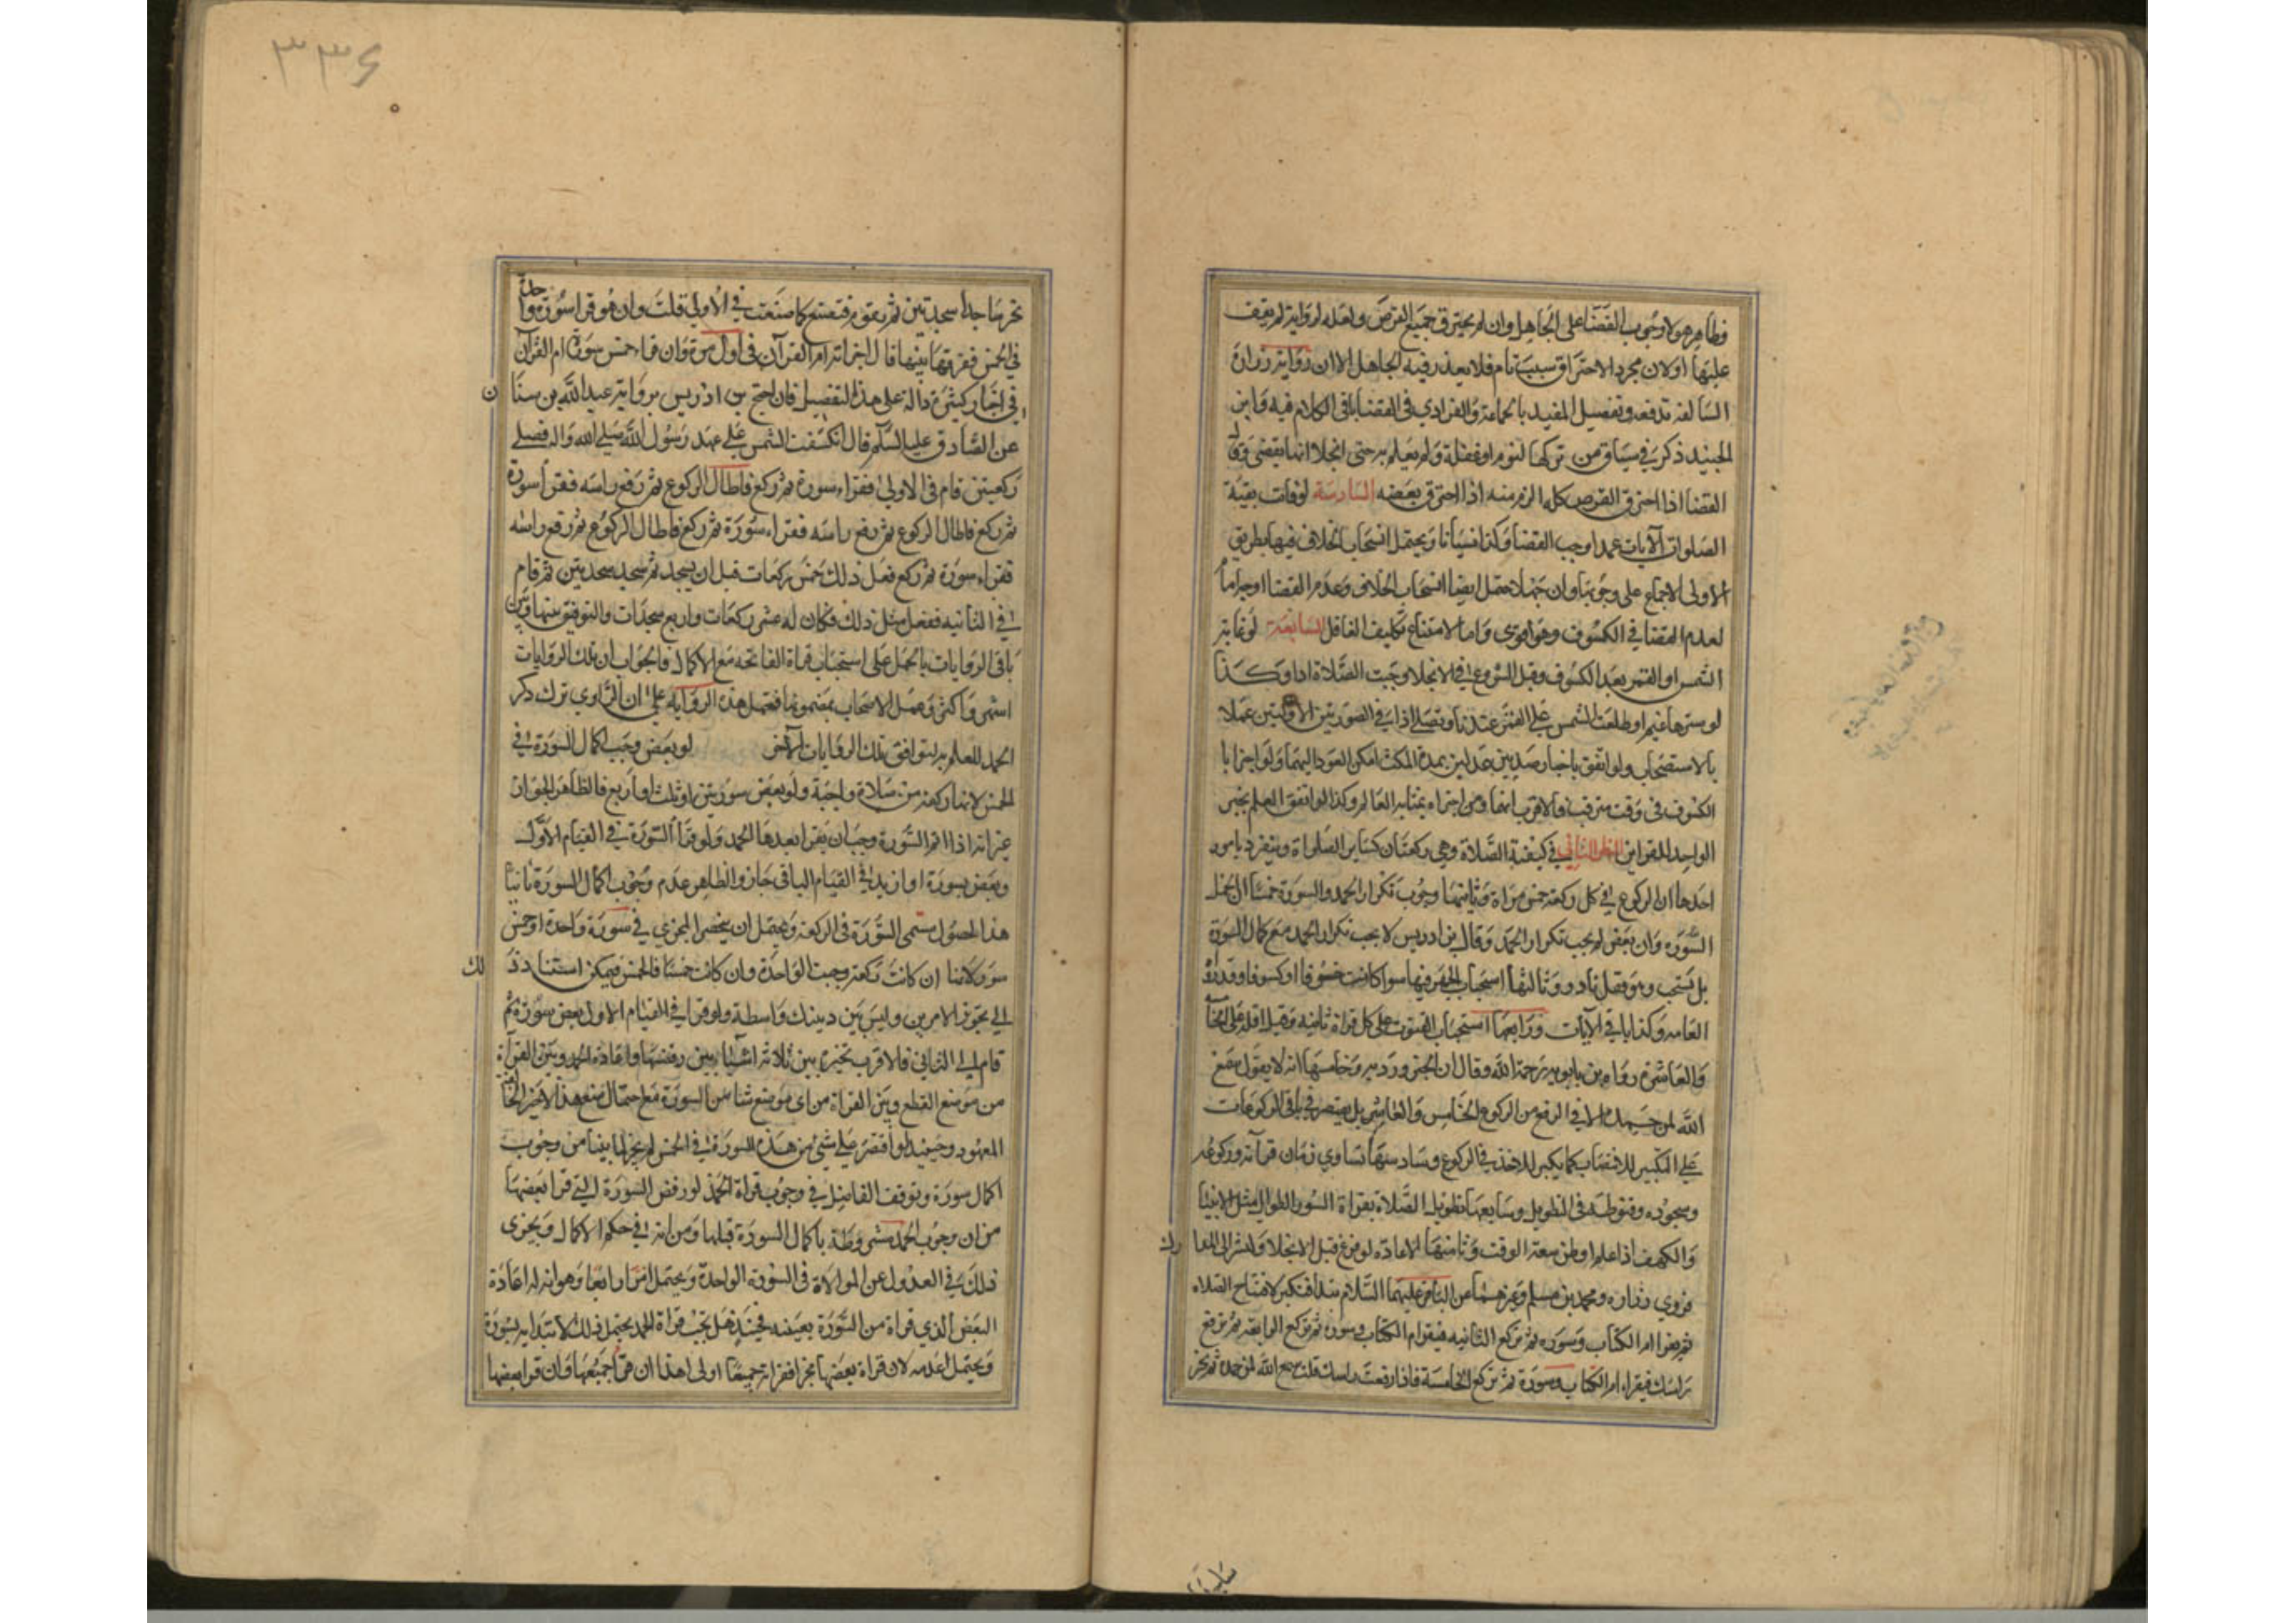 فظاهر هولاء وجوب القضا على الجاهل وان لم يحترق جميع القرص ولعله لرواية لم نقف
عليها اولان مجرد الاحتراق سبب تام فلا يعذر فيه الجاهل الا ان رواية زرارة
السالفة تدفعه وتفصيل المفيد بالجماعة والفرادي في القضا باقي الكلام فيه وابن
الجنيد ذكر في سياق من تركها لنوم او غفلة ولم يعلم به حتى انجلا انما يقضي وقال
القضا اذا احترق القرص كله الزم منه اذا احترق بعضه السادسة لو فات بقية
الصلوات الآيات عمدا وجب القضا وكذا نسيانا ويحتمل انسحاب الخلاف فيها بطريق
الاولى لاجماع على وجوبها وان جهلا احتمل ايضا انسحاب الخلاف وعدم القضا اوجراما
لعدم القضا في الكسوف وهو اقوى واما لامتناع تكليف الغافل السابعة لو غابت
الشمس او القمر بعد الكسوف وقبل الشروع في الانجلا وجبت الصلاة ادا وكذا
لو سترها غيم او طلعت الشمس على القمر عندنا وتصلى اذا في الصورتين الاوليين عملا
بالاستصحاب ولو اتفق باخبار رصديين عدلين بمدة المكث امكن العود اليهما ولو اخبرا با
الكسوف في وقت مترقب فالاقرب انهما ومن اخبراه بمثابة العالم وكذا لو اتفق العلم بخبر
الواحد للقراين النظر الثاني في كيفية الصلاة وهي ركعتان كساير الصلواة وينفرد بامور
احدها ان الركوع في كل ركعة خمس مراة وثانيها وجوب تكرار الحمد والسورة خمسا ان اكمل
السورة وان بعض لم يجب تكرار الحمد وقال بن ادريس لا يجب تكرار الحمد مع كمال السورة
بل يستحب وهو قول نادر وثالثها استحباب الجهر فيها سوا كانت خسوفا او كسوفا وقد رواه
العامه وكذا باقي الآيات ورابعها استحباب القنوت على كل قراة ثانيه وقيل اقله على الخامسة
والعاشرة رواه بن بابويه رحمة الله وقال ان الخبر ورد به وخامسها انه لا يقول سمع
الله لمن حمده الا في الرفع من الركوع الخامس والعاشر بل يقتصر في باقي الركوعات
على التكبير للانتصاب كما يكبر للاخذ في الركوع وسادسها تساوي زمان قرآته وركوعه
وسجوده وقنوطه في التطويل وسابعها تطويل الصلاة بقراة السور الطوال مثل الانبيا
والكهف اذا علم او ظن سعة الوقت وثامنها الاعاده لو فرغ قبل الانجلا ولنشر الى المعا
رك
فروي زراره ومحمد بن مسلم وغيرهما عن الباقر عليهما السلام تبدا فتكبر لافتتاح الصلاه
ثم يقرا ام الكتاب وسوره ثم تركع الثانيه فيقرا ام الكتاب وسوره ثم تركع الرابعه ثم ترفع
راسك فيقراء ام الكتاب وسورة ثم تركع الخامسة فاذا رفعت راسك قلت سمع الله لمن حمده ثم تخر
٣٣٤
تخر ساجدا سجدتين ثم تقوم فتصنع كما صنعت في الاولى قلت وان هو قرا سورة واحدة
في الخمس ففرقها بينها قال اجزاته ام القرآن في اول مرة وان قرا خمس سور فمع كل سورة ام القرآن
في اخبار كثيرة دالة على هذا التفصيل فان احتج بن ادريس برواية عبد الله بن سنا
ن
عن الصادق عليه السلم قال انكسفت الشمس على عهد رسول الله صلى الله واله فصلى
ركعتين قام في الاولى فقراء سورة ثم ركع فاطال الركوع ثم رفع راسه فقرا سورة
ثم ركع فاطال الركوع ثم رفع راسه فقراء سورة ثم ركع فاطال الركوع ثم رفع راسه
فقراء سورة ثم ركع فعل ذلك خمس ركعات قبل ان يسجد ثم سجد سجدتين ثم قام
في الثانيه ففعل مثل ذلك فكان له عشر ركعات واربع سجدات والتوفيق بينها وبين
باقي الروايات بالحمل على استحباب قراة الفاتحه مع الاكمال فالجواب ان تلك الروايات
اشهر واكثر وعمل الاصحاب بمضمونها فتحمل هذه الرواية على ان الراوي ترك ذكر
الحمد للعلم به ليتوافق تلك الروايات الآخر لو بعض وجب اكمال السورة في
الخمس لانها ركعة من صلاة واجبة ولو بعض سورتين او ثلث او اربع فالظاهر الجواز
غير انه اذا اتم السورة وجب ان يقرا بعدها الحمد ولو قرا السورة في القيام الاول
وبعض بسورة او ازيد في القيام الباقي جاز والظاهر عدم وجوب اكمال السورة ثانيا
هذا لحصول مسمى السورة في الركعة ويحتمل ان ينحصر المجزي في سورة واحدة او خمس
سور لانها ان كانت ركعة وجبت الواحدة وان كانت خمسا فالخمس ويمكن استناد ذ
لك
الى تجويز الامرين وليس بين ذينك واسطة ولو قرا في القيام الاول بعض سورة ثم
قام الى الثاني فالاقرب تخيره بين ثلاثة اشيا بين رفضها واعادة الحمد وبين القراة
من موضع القطع وبين القراة من اي موضع شا من السورة مع احتمال منع هذا الاخير لمخالفة
المعهود وحينئذ لو اقتصر على شيء من هذه السورة في الخمس لم يجز لما بينا من وجوب
اكمال سورة وتوقف الفاضل في وجوب قراة الحمد لو رفض السورة التي قرا بعضها
من ان وجوب الحمد مشروطة باكمال السورة قبلها ومن انه في حكم الاكمال ويجزى
ذلك في العدول عن الموالاة في السورة الواحدة ويحتمل امرا رابعا وهو انه له اعادة
البعض الذي قراه من السورة بعينه فحينئذ هل يجب قراة الحمد يحتمل ذلك لابتدايه بسورة
ويحتمل عدمه لان قراة بعضها مجز فقراة جميعها اولى هذا ان قرا جميعها وان قرا بعضها